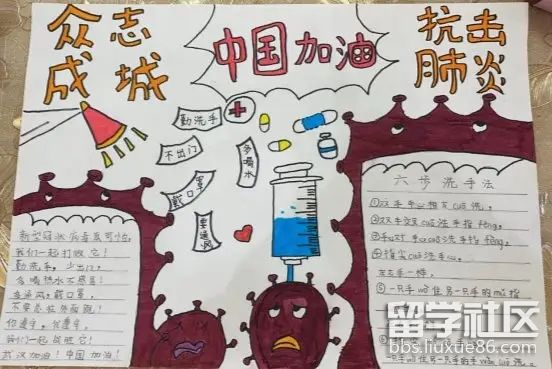 众志
成城
中国加油
抗击
肺炎
勤洗手
不出门
戴口罩
多喝水
要通风
新型冠状病毒真可怕,
我们一起打败它!
勤洗手,少出门,
多喝热水不恩多!
多通风,戴口罩,
你遵守,我遵守,
我们一起战胜它!
武汉加油!中国加油!
六步洗手法
①双手手心相互cuō洗。
②双手交叉cuō洗手指fèng。
④指尖cuō洗手心。
左右手一样,
⑤一只手wò住另一只手的mǔ指
留学社区
bbs.liuxue86.com